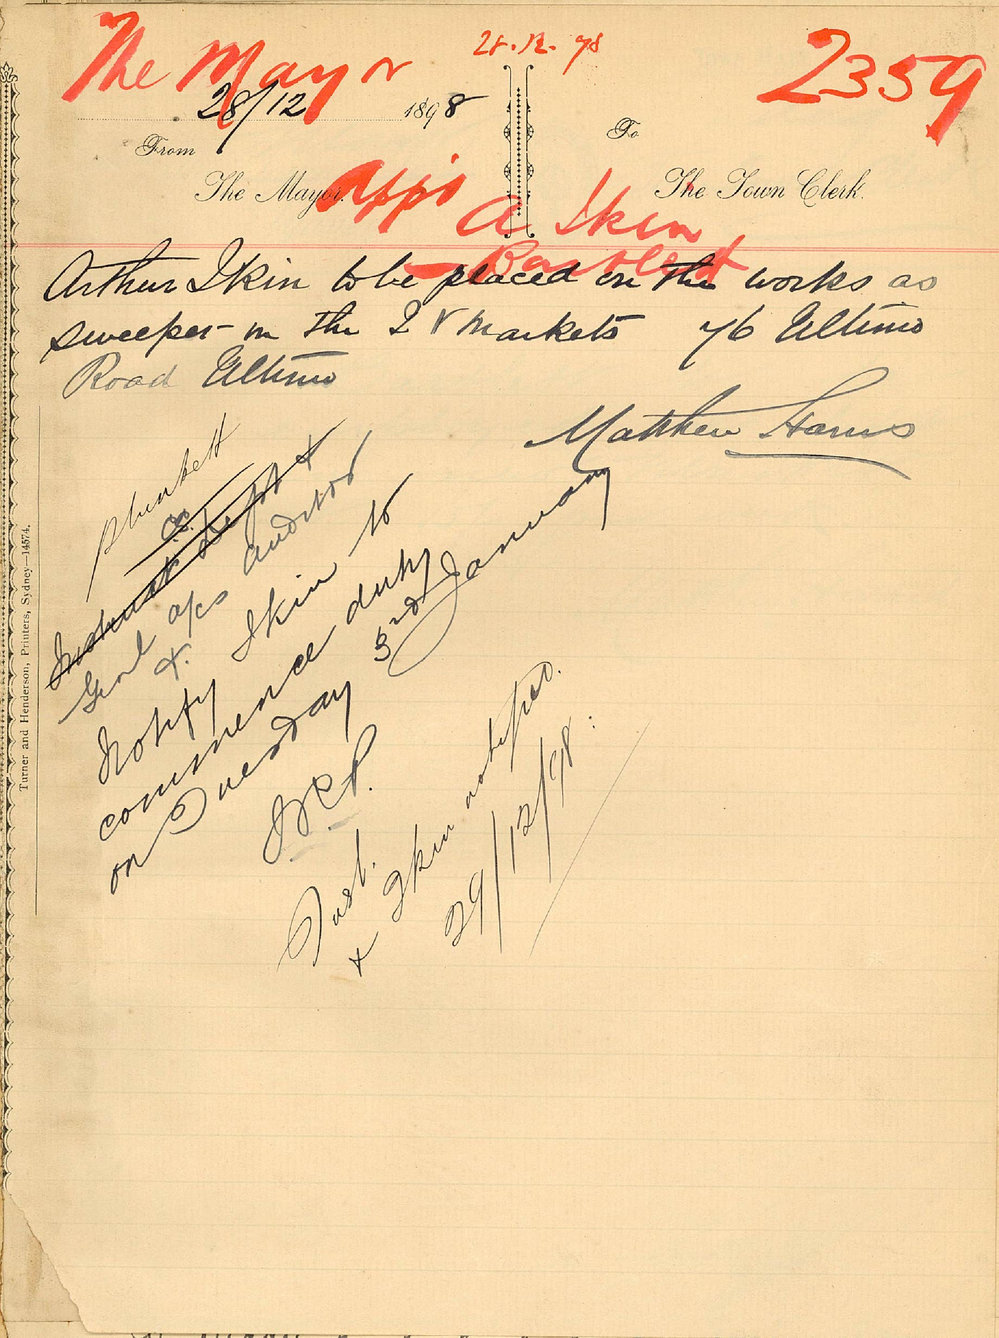 The Mayor
28.12.98
2359
28/12 1898
From
To
The Mayor.
The Town Clerk.
App's
A Ikin
Arthur Ikin to be placed on the works as
sweeper in the Q V Markets 76 Ultimo
Road Ultimo
Matthew Harris
Plunkett
Genl a/cs auditor
&.
Notify Ikin to
commence duty
on Tuesday 3rd January
& Ikin notified.
29/12/98.
Turner and Henderson, Printers, Sydney—14574.